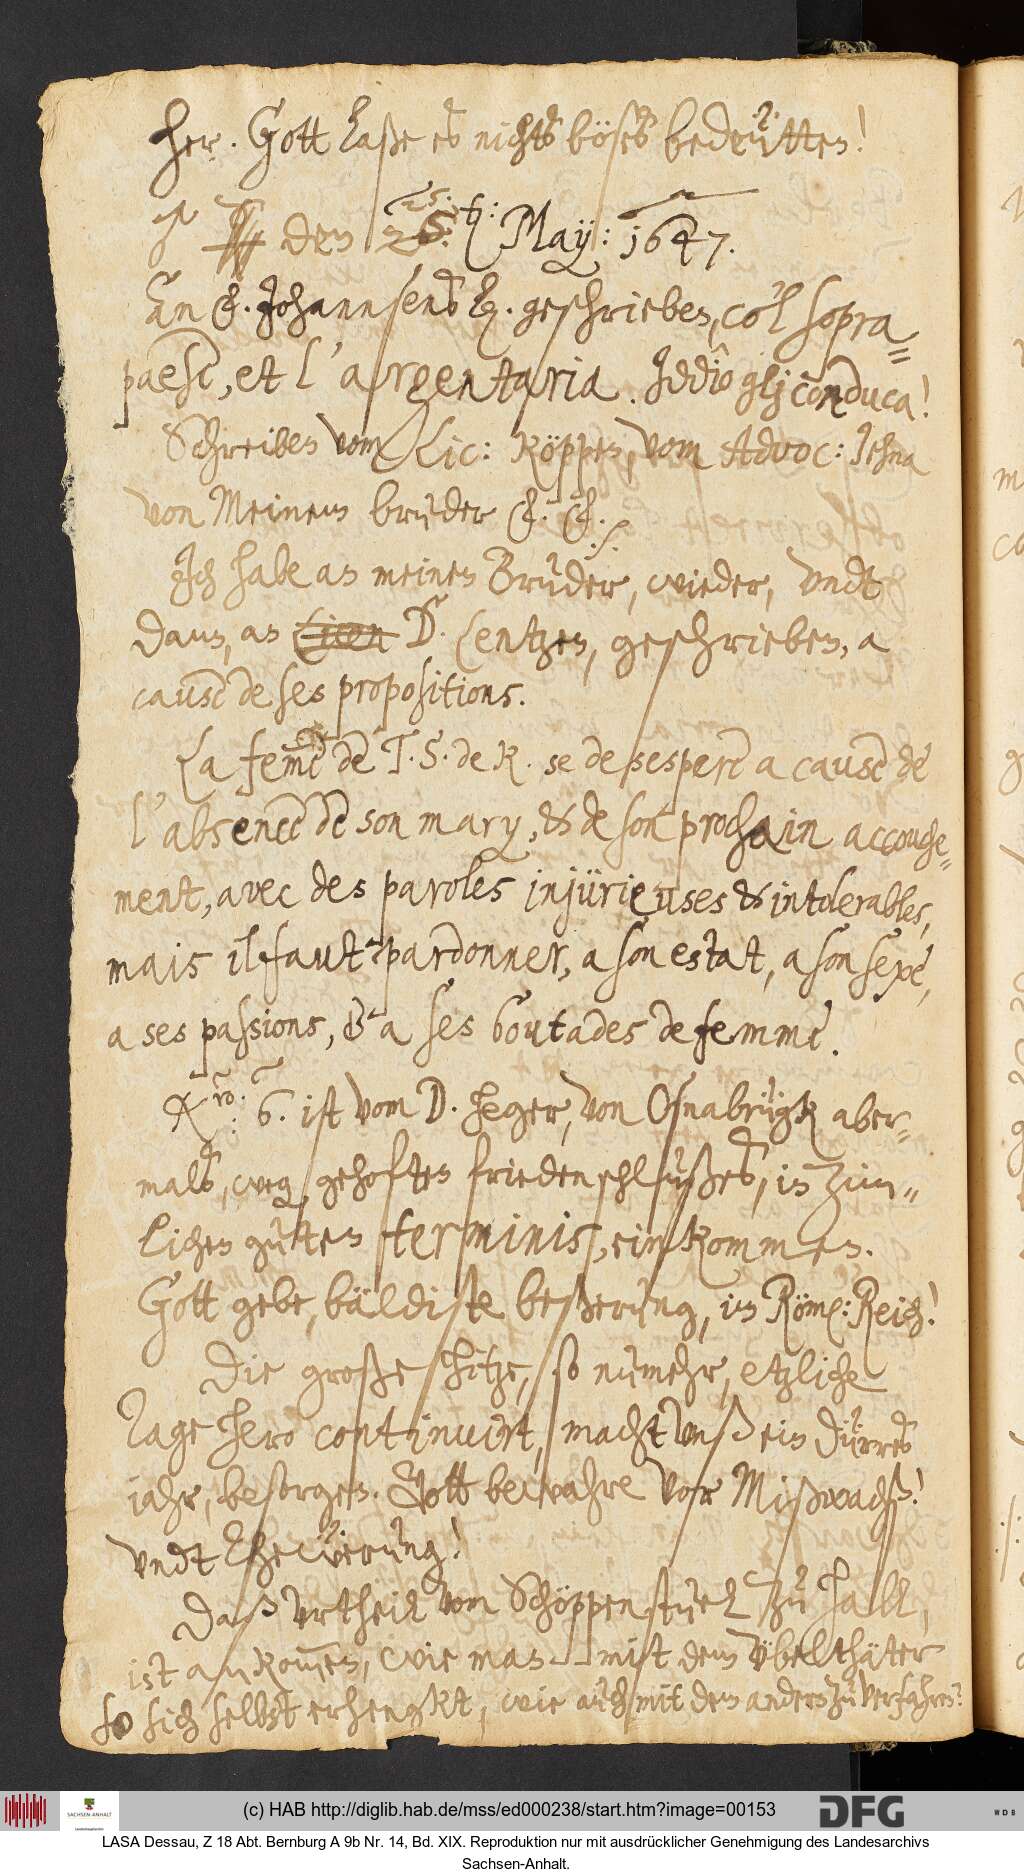 her. Gott laße es nichts böses bedeütten!
den 25. May: 1647.
An H. Johannsen Lg. geschrieben, col sopra-
paese, et l'argentaria. Iddio glj conduca!
Schreiben vom Lic: Köppen, vom Advoc: Jehna
von Meinem bruder H. H.
Jch habe an meinen Bruder, wieder, vndt
dann, an D. Lentzen, geschrieben, a
cause de ses propositions.
La femme de T. S. de K. se desespere a cause de
l'absence de son mary, & de son prochain accouche-
ment, avec des paroles injürieuses & intolerables,
mais il faut pardonner, a son estat, a son sexe,
a ses passions, & a ses boutades de femme.
Nro. 6. ist vom D. Heger, von Osnabrügk aber-
mals, weg, gehoften friedenschlußes, in zim-
lichen guten terminis, einkommen.
Gott gebe, bäldiste beßerung, im Röm: Reich!
Die große hitze, so numehr, etzliche
Tage hero continuirt, macht vnß ein dürres
iahr, besorgen. Gott bewahre vor Mißwachß!
vndt Thewerung!
Daß vrtheil vom Schöppenstuel zu Hall,
ist ankommen, wie man mit dem vbelthäter
so sich selbst erhengkt, wie auch mit dem andern zu verfahren?
(c) HAB http://diglib.hab.de/mss/ed000238/start.htm?image=00153
SACHSEN-ANHALT
DFG
WDB
LASA Dessau, Z 18 Abt. Bernburg A 9b Nr. 14, Bd. XIX. Reproduktion nur mit ausdrücklicher Genehmigung des Landesarchivs
Sachsen-Anhalt.